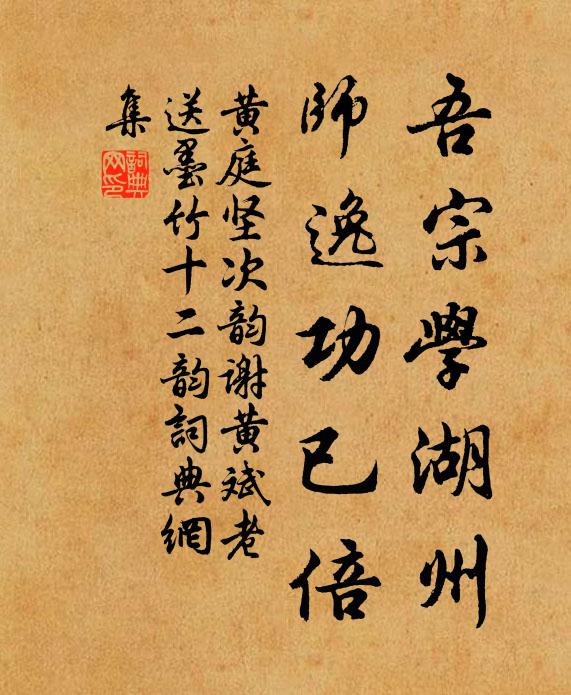 吾宗學湖州
師逸功已倍
黄庭坚次韵谢黄斌老
送墨竹十二韵詞典網
集
詞典網印